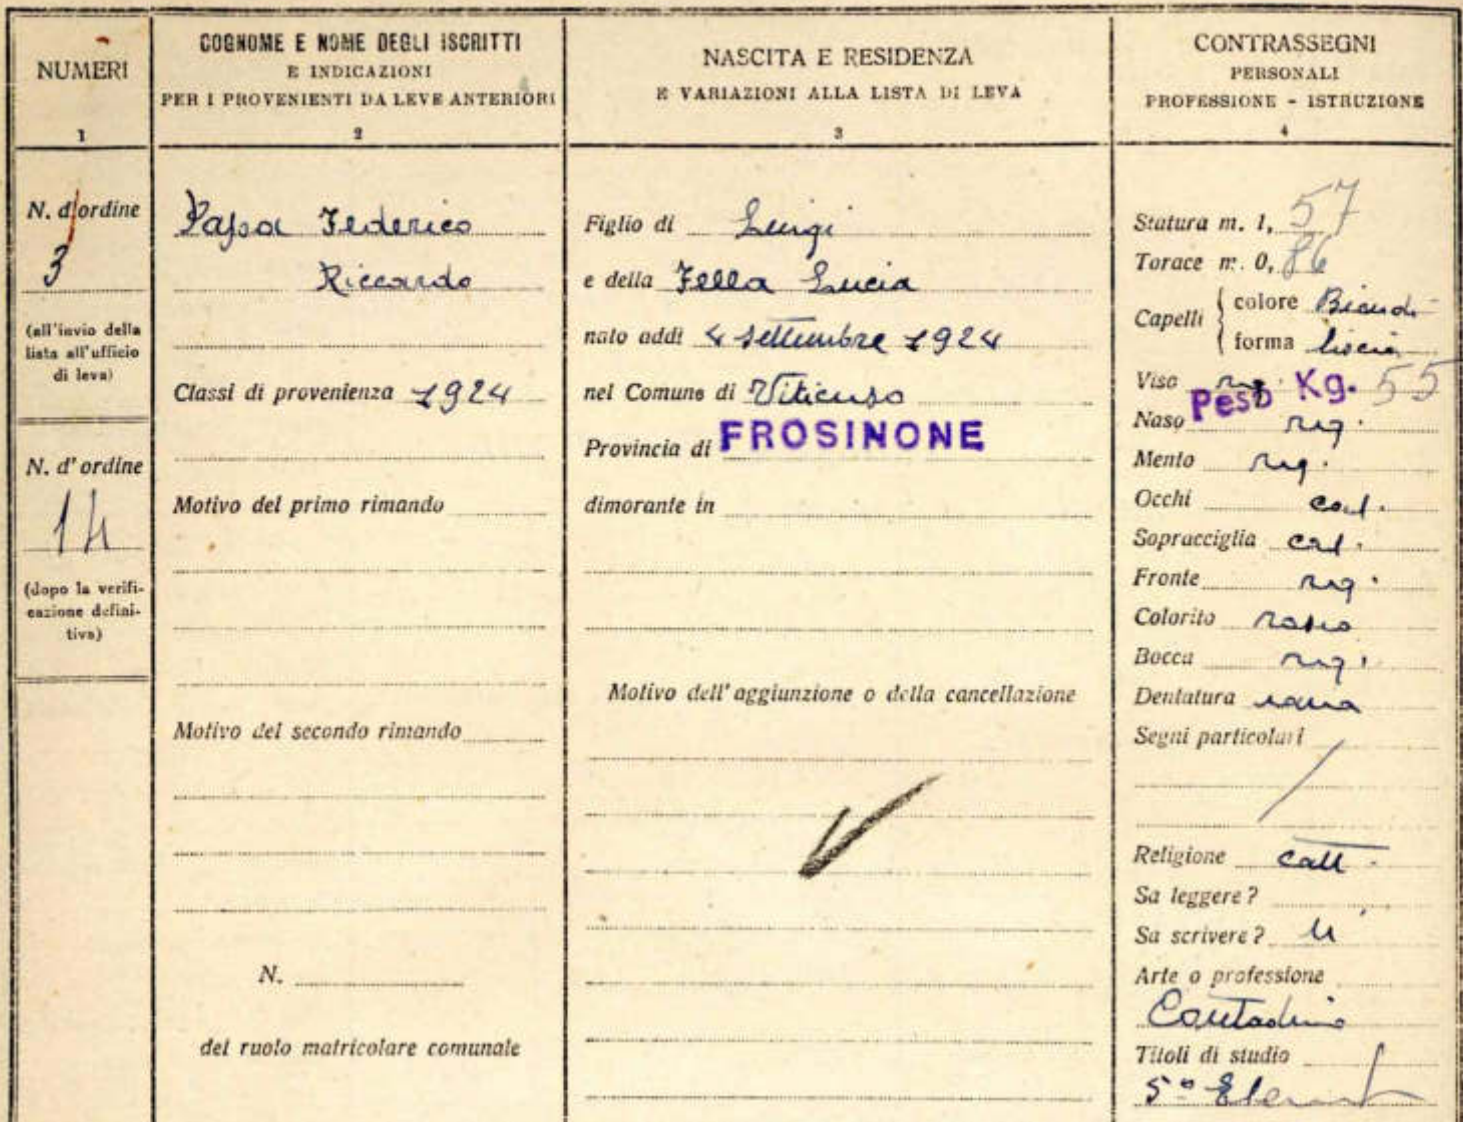 NUMERI
1
N. d'ordine
3
(all'invio della
lista all'ufficio
di leva)
N. d'ordine
14
(dopo la verifi-
cazione defini-
tiva)
COGNOME E NOME DEGLI ISCRITTI
E INDICAZIONI
PER I PROVENIENTI DA LEVE ANTERIORI
2
Papa Federico
Riccardo
Classi di provenienza 1924
Motivo del primo rimando
Motivo del secondo rimando
N.
del ruolo matricolare comunale
NASCITA E RESIDENZA
E VARIAZIONI ALLA LISTA DI LEVA
3
Figlio di Luigi
e della Fella Lucia
nato addì 4 settembre 1924
nel Comune di Viticuso
Provincia di FROSINONE
dimorante in
Motivo dell'aggiunzione o della cancellazione
CONTRASSEGNI
PERSONALI
PROFESSIONE - ISTRUZIONE
4
Statura m. 1, 57
Torace m. 0, 86
Capelli { colore Biondi
forma lisci
Viso reg. Peso Kg. 55
Naso reg.
Mento reg.
Occhi cast.
Sopracciglia cast.
Fronte reg.
Colorito roseo
Bocca reg.
Dentatura sana
Segni particolari /
Religione catt.
Sa leggere?
Sa scrivere? si
Arte o professione
Contadino
Titoli di studio
5ª Element